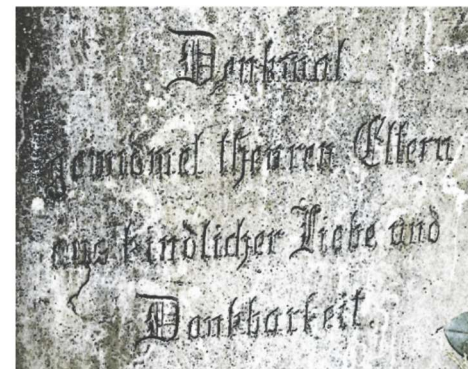 Denkmal
gewidmet theuren Eltern
aus kindlicher Liebe und
Dankbarkeit.